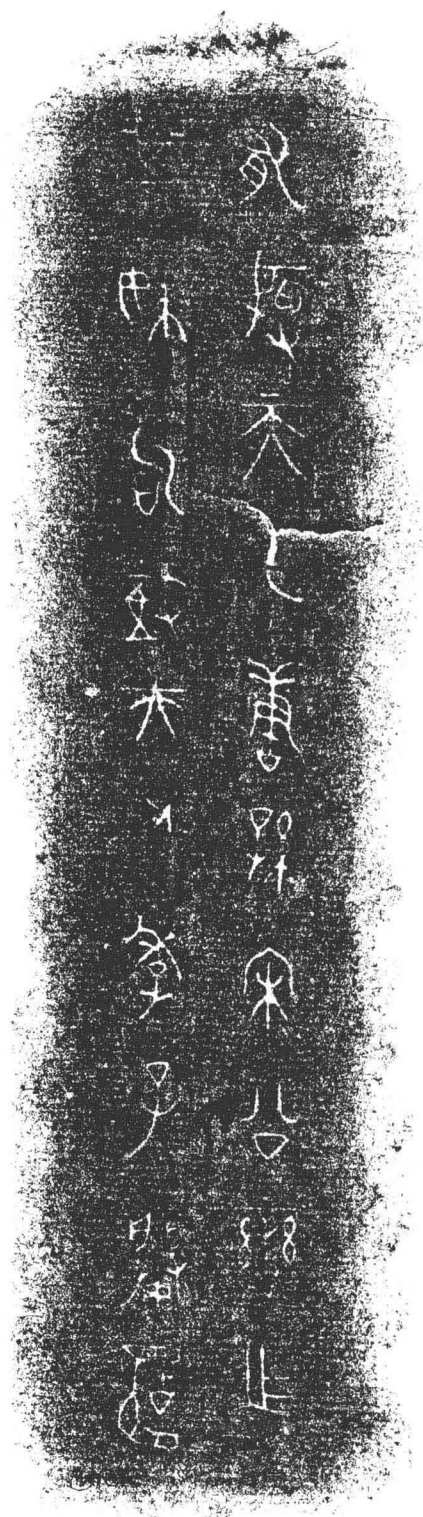 有殷天乙唐孫宋公䜌乍
其妹句敔夫人季子媵𠤳